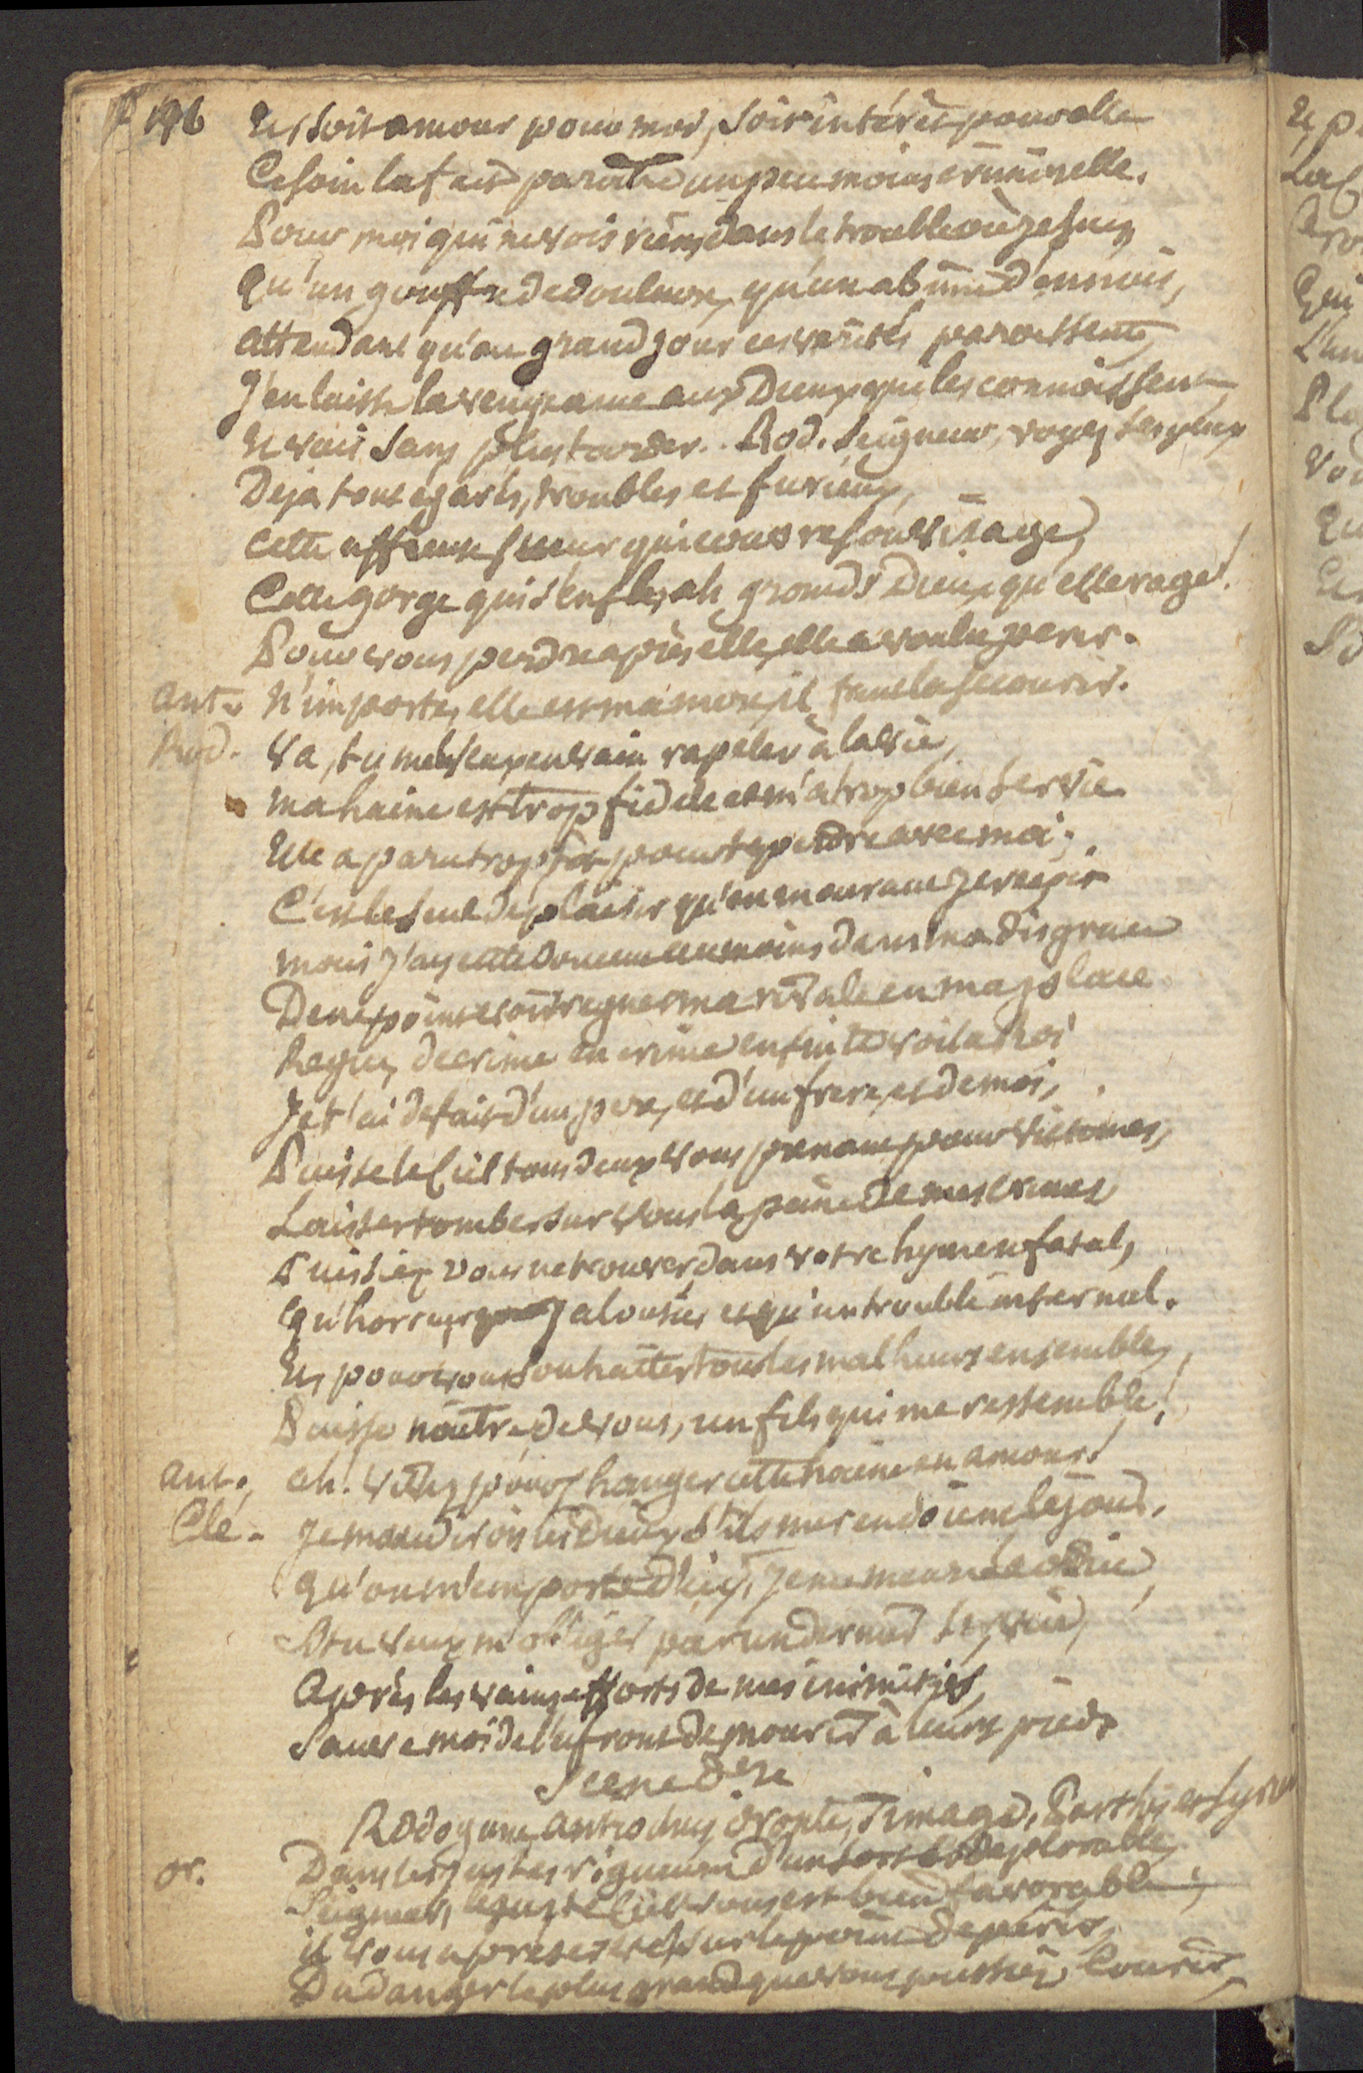 196 Et soit amour pour moi, soit intérêt pour elle
Ce soin la fait paraitre un peu moins criminelle.
Pour moi qui ne vois rien, dans le trouble où je suis,
Qu'un gouffre de douleurs, qu'un abime d'ennuis,
attendant qu'au grand jour ces vérités paroissent,
J'en laisse la vengeance aux Dieux qui les connoissent
Et vais sans plus tarder.. Rod. Seigneur, voyez ses yeux
Deja tout égarés, troubles et furieux,
cette affreuse sueur qui court sur son visage,
Cette gorge qui s'enfle, ah grands Dieux qu'elle rage!
Pour vous perdre après elle, elle a voulu perir.
Ant. N'importe, elle est ma mere, il faut la secourir.
Rod. Va, tu me veux en vain rapeler à la vie,
ma haine est trop fidele et m'a trop bien servie
Elle a paru trop tot pour te perdre avec moi;
C'est le seul deplaisir qu'en mourant je reçoi
mais j'ay cette douceur au moins dans ma disgrace
De ne point voir regner ma rivale en ma place
Regne, de crime en crime enfin te voila Roi
Je t'ai defait d'un pere, et d'un frere, et de moi,
Puisse le Ciel tous deux vous prenant pour victimes,
Laisser tomber sur vous la peine de mes crimes
Puissiez vous ne trouver dans votre hymen fatal,
Qu'horreur jalousie, et qu'un trouble infernal.
Et pour vous souhaiter tous les malheurs ensemble,
Puisse naitre de vous, un fils qui me ressemble!
Ant. ah. vivez pour changer cette haine en amour!
Cle. Je maudirois les Dieux s'ils me rendoient le jour.
Qu'on m'emporte d'ici, je me meurs Laodice
Si tu veux m'obliger par un dernier service,
Après les vains efforts de mes inimitiés,
Sauve moi de l'afront de mourir à leurs pieds
Scene dere
Rodogune, Antiochus, Oronte, Timagene, Parthes et Syriens
or. Dans les justes rigueurs d'un sort si deplorable,
Seigneur, le juste Ciel vous est bien favorable;
il vous a préservé, sur le point de perir,
Du danger le plus grand que vous pussiez courir,